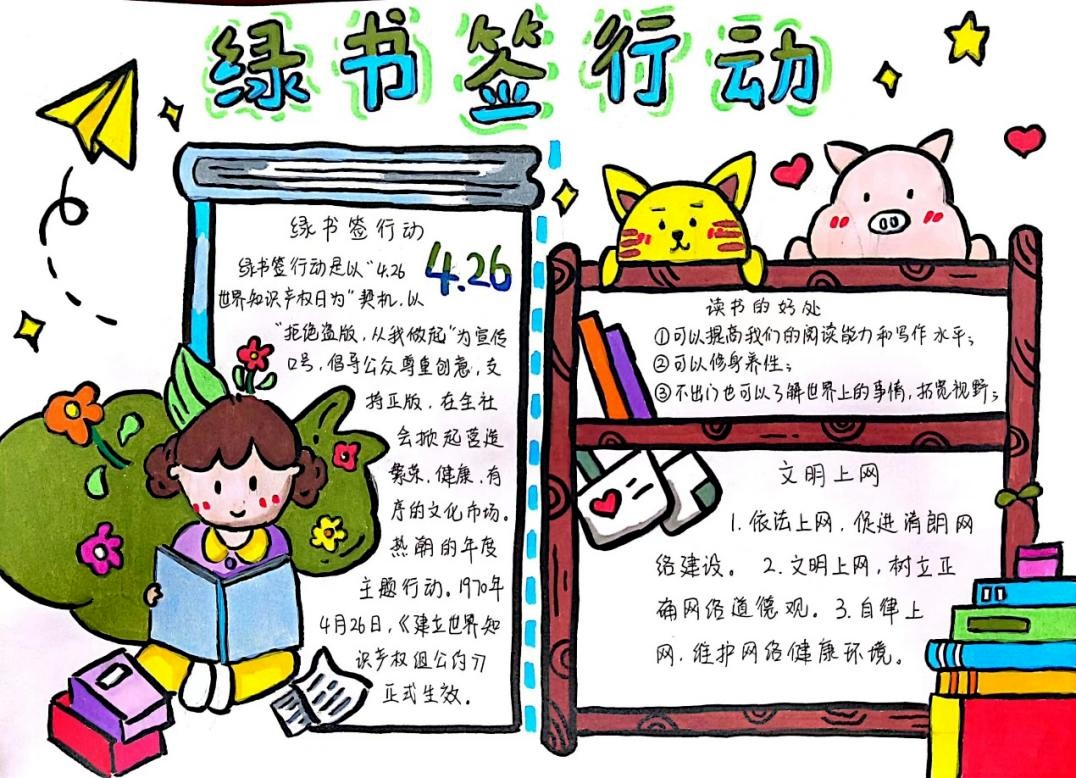 绿书签行动
绿书签行动
4.26
绿书签行动是以“4.26
世界知识产权日为”契机，以
“拒绝盗版，从我做起”为宣传
口号，倡导公众尊重创意，支
持正版，在全社
会掀起营造
繁荣，健康，有
序的文化市场。
热潮的年度
主题行动。1970年
4月26日，《建立世界知
识产权组公约》
正式生效。
读书的好处
①可以提高我们的阅读能力和写作水平；
②可以修身养性；
③不出门也可以了解世界上的事情，拓宽视野；
文明上网
1.依法上网，促进清朗网
络建设。2.文明上网，树立正
确网络道德观。3.自律上
网，维护网络健康环境。